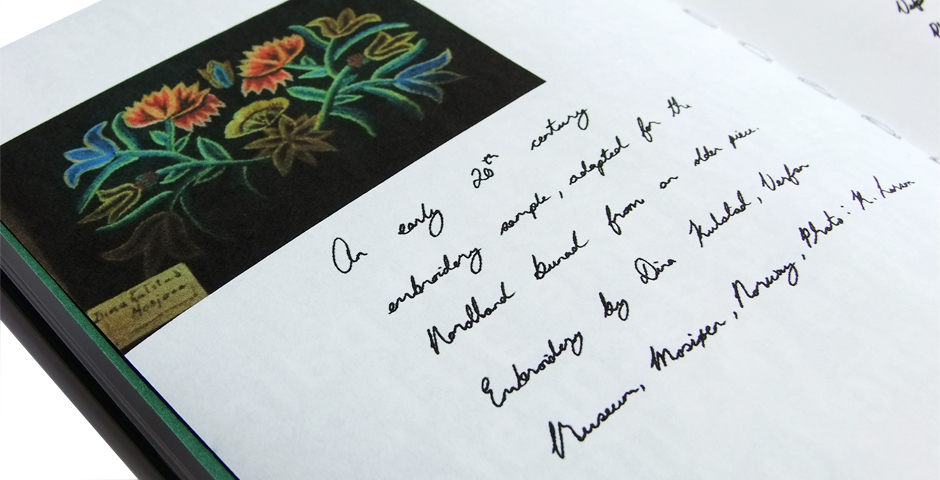 Dina Kulstad
Mosjøen
An early 20th century
embroidery sample, adapted for the
Nordland bunad from an older piece.
Embroidery by Dina Kulstad, Vefsn
Museum, Mosjøen, Norway, Photo: K.